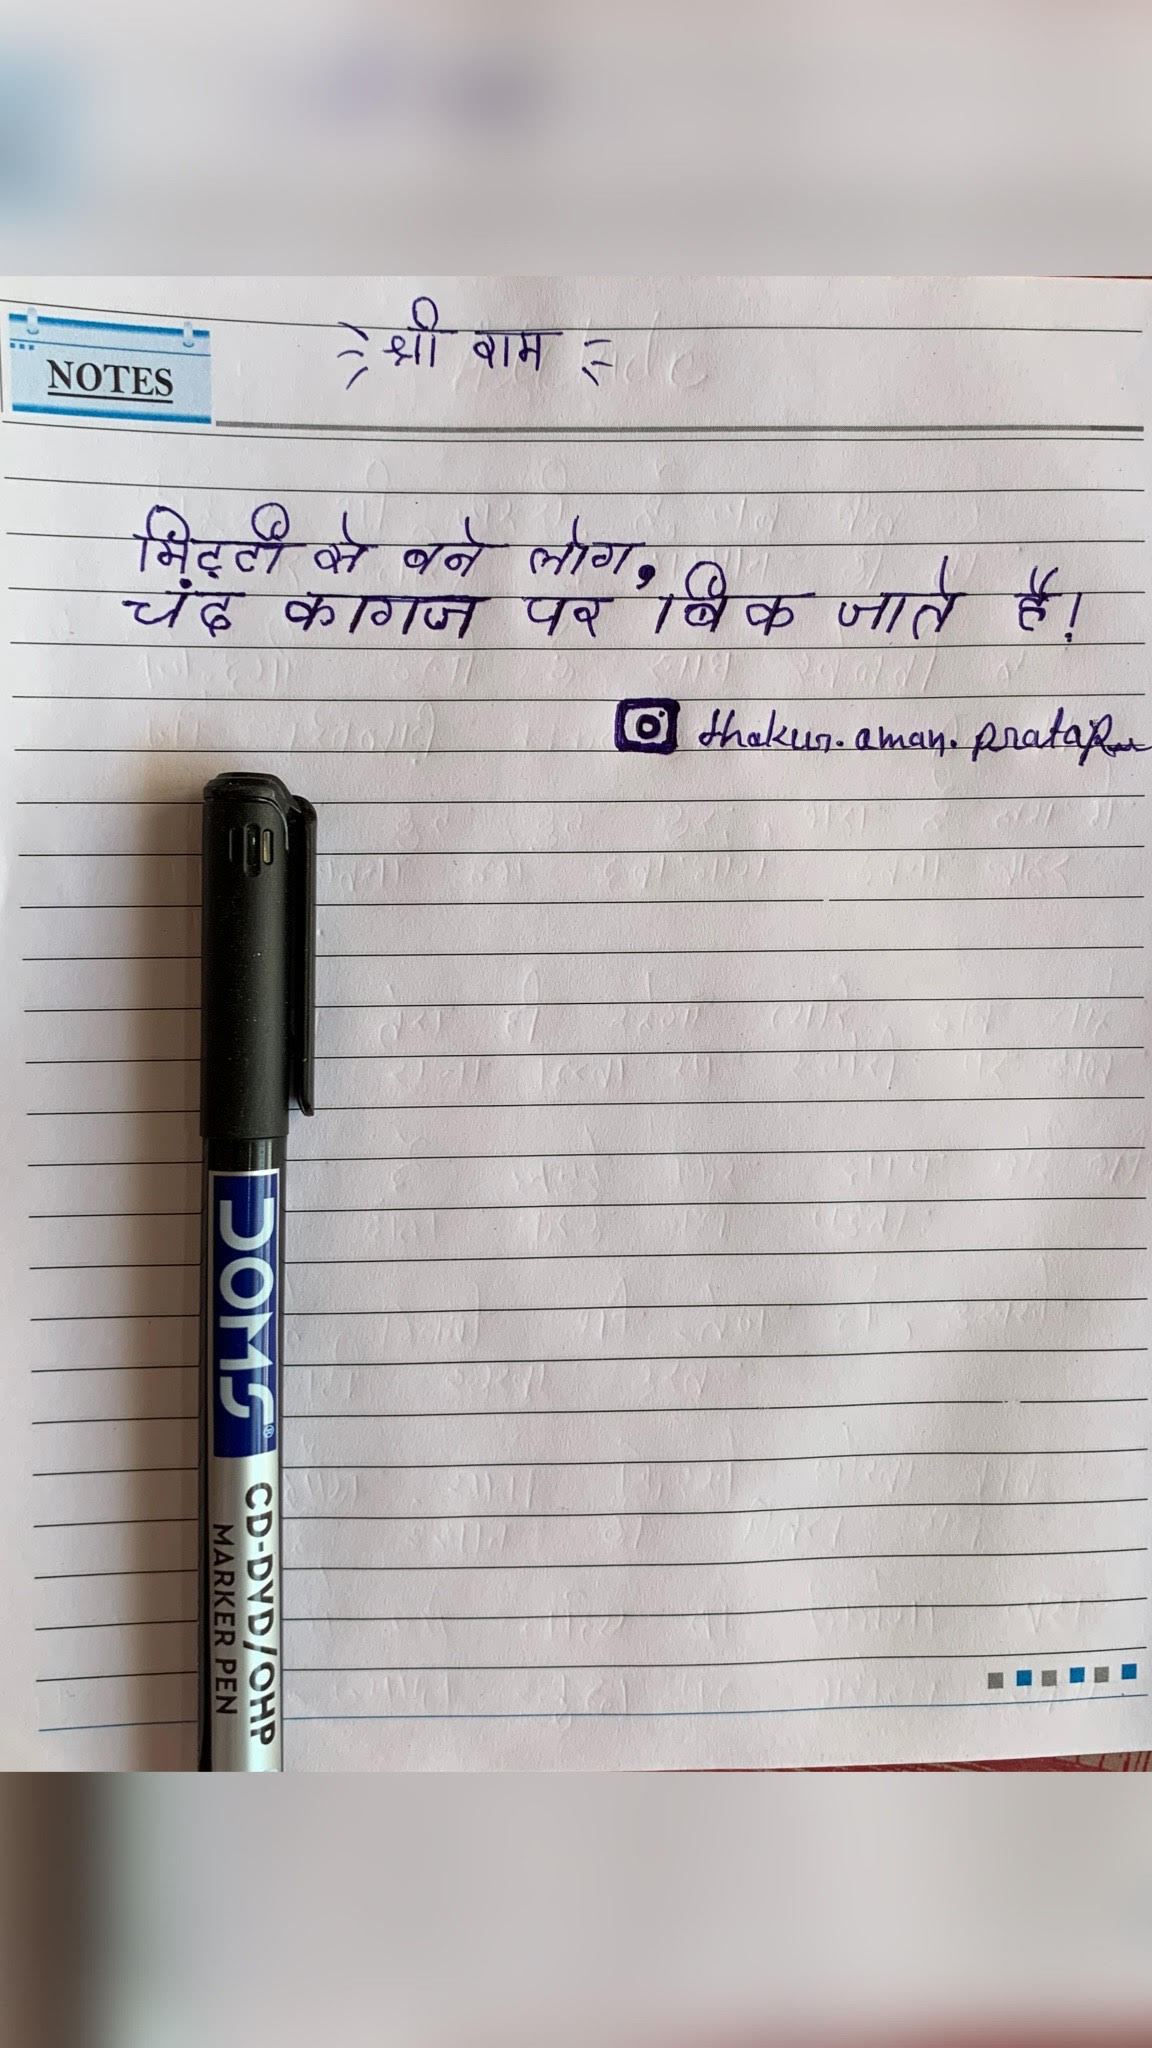 श्री राम
NOTES
मिट्टी से बने लोग,
चंद कागज पर बिक जाते है!
thakur.aman.pratap
DOMS®
CD-DVD/OHP
MARKER PEN